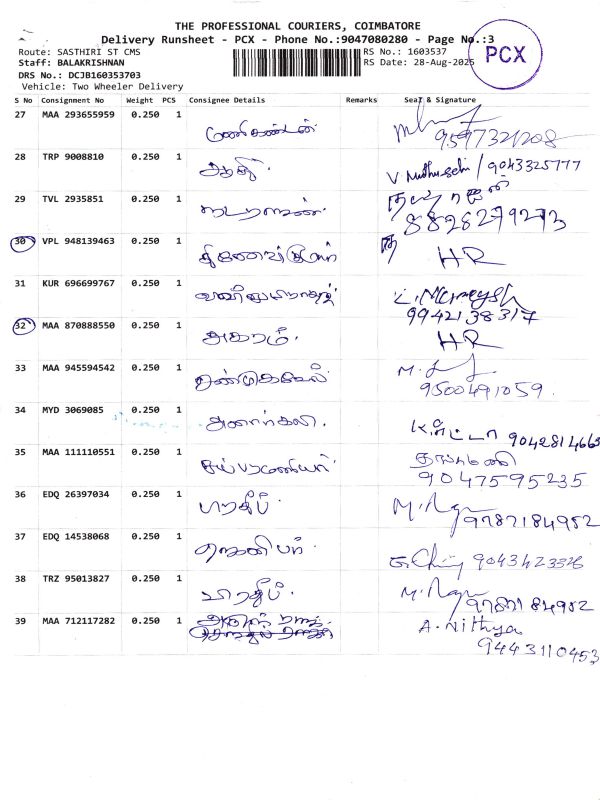 THE PROFESSIONAL COURIERS, COIMBATORE
Delivery Runsheet - PCX - Phone No.:9047080280 - Page No.:3
Route: SASTHIRI ST CMS
RS No.: 1603537
Staff: BALAKRISHNAN
RS Date: 28-Aug-2025
DRS No.: DCJB160353703
Vehicle: Two Wheeler Delivery
PCX
S No Consignment No Weight PCS Consignee Details Remarks Seal & Signature
27 MAA 293655959 0.250 1 மணிகண்டன்
9597321208
28 TRP 9008810 0.250 1 V Muthuselvi / 9043325777
29 TVL 2935851 0.250 1 நடராஜன்
8828279273
30 VPL 948139463 0.250 1 HR
31 KUR 696699767 0.250 1
9942138317
32 MAA 870888550 0.250 1 அகரம். HR
33 MAA 945594542 0.250 1
9500491059.
34 MYD 3069085 0.250 1 அனார்கலி. 9042814663
35 MAA 111110551 0.250 1 தங்கமணி
9047595235
36 EDQ 26397034 0.250 1 பிரதீப்.
9787184952
37 EDQ 14538068 0.250 1 9043423326
38 TRZ 95013827 0.250 1 பிரதீப்.
9787184952
39 MAA 712117282 0.250 1 A. Nithya
9443110453